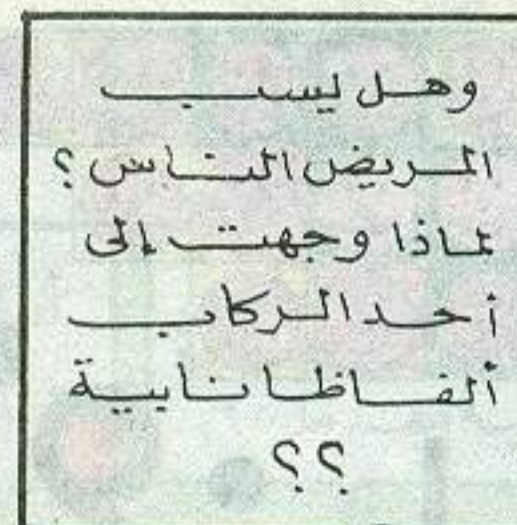 وهل يسب
المريض الناس؟
لماذا وجهت إلى
أحد الركاب
ألفاظا نابية
؟؟